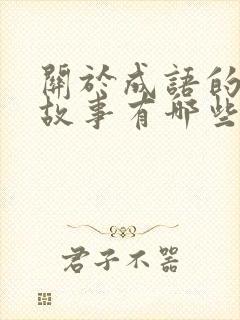 關於成語的
故事有哪些
君子不器